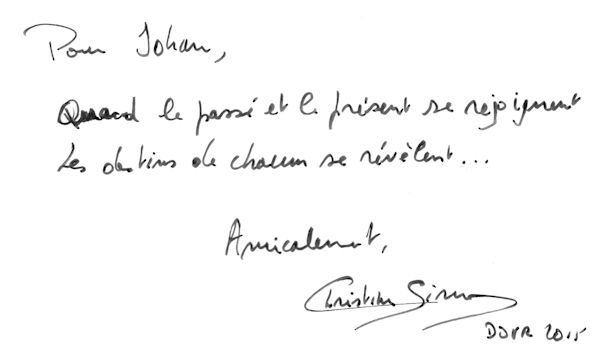 Pour Johan,
Quand le passé et le présent se rejoignent
Les destins de chacun se révèlent...
Amicalement,
Christian
2015